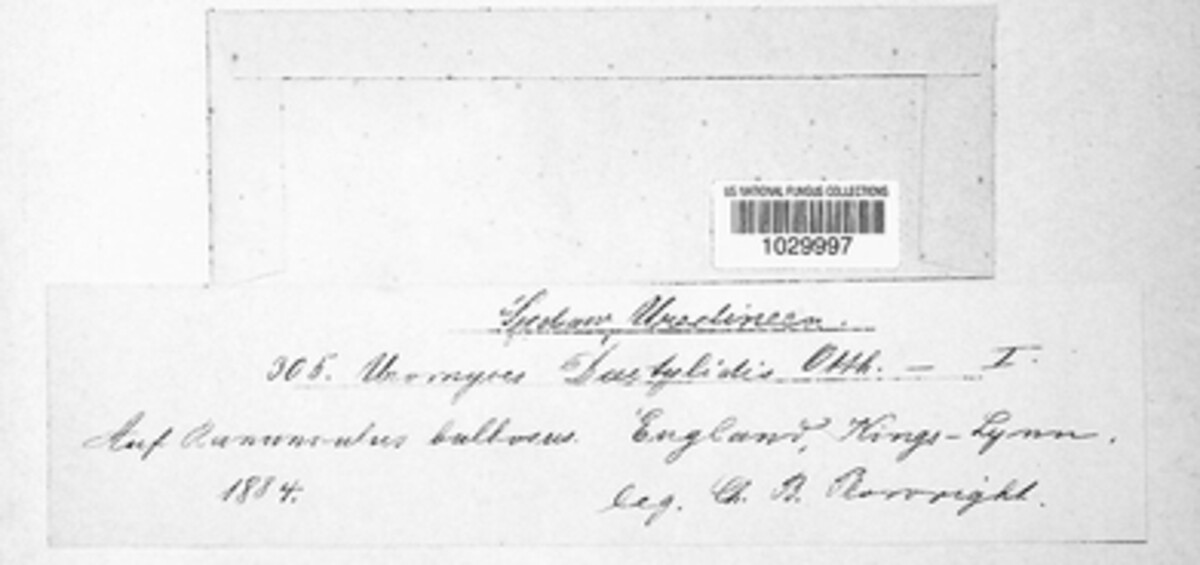 US NATIONAL FUNGUS COLLECTIONS
1029997
Sydow, Uredineen.
305. Uromyces Dactylidis Otth. — I.
Auf Ranunculus bulbosus. England, Kings-Lynn.
1884. leg. Ch. B. Plowright.